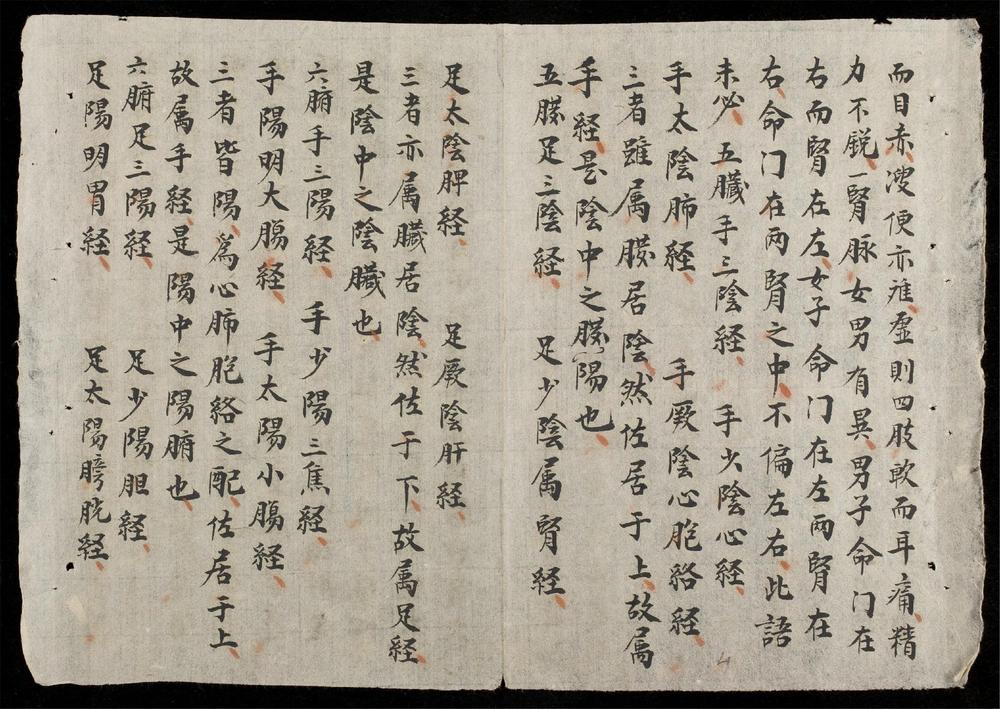 而目赤溲便亦难、虚則四肢軟而耳痛、精
力不鋭、一腎脉女男有異、男子命门在
右而腎在左、女子命门在左两腎在
右、命门在两腎之中、不偏左右、此語
未必、五臟手三陰経、 手少陰心経、
手太陰肺経、 手厥陰心胞絡経、
三者雖属臟居陰、然佐居于上、故属
手経、是陰中之陽也、
五臟足三陰経、 足少陰属腎経、
足太陰脾経、 足厥陰肝経、
三者亦属臟居陰、然佐于下、故属足経、
是陰中之陰臓也、
六腑手三陽経、 手少陽三焦経、
手陽明大腸経、 手太陽小腸経、
三者皆陽、為心肺胞絡之配、佐居于上、
故属手経、是陽中之陽腑也、
六腑足三陽経、 足少陽胆経、
足陽明胃経、 足太陽膀胱経、